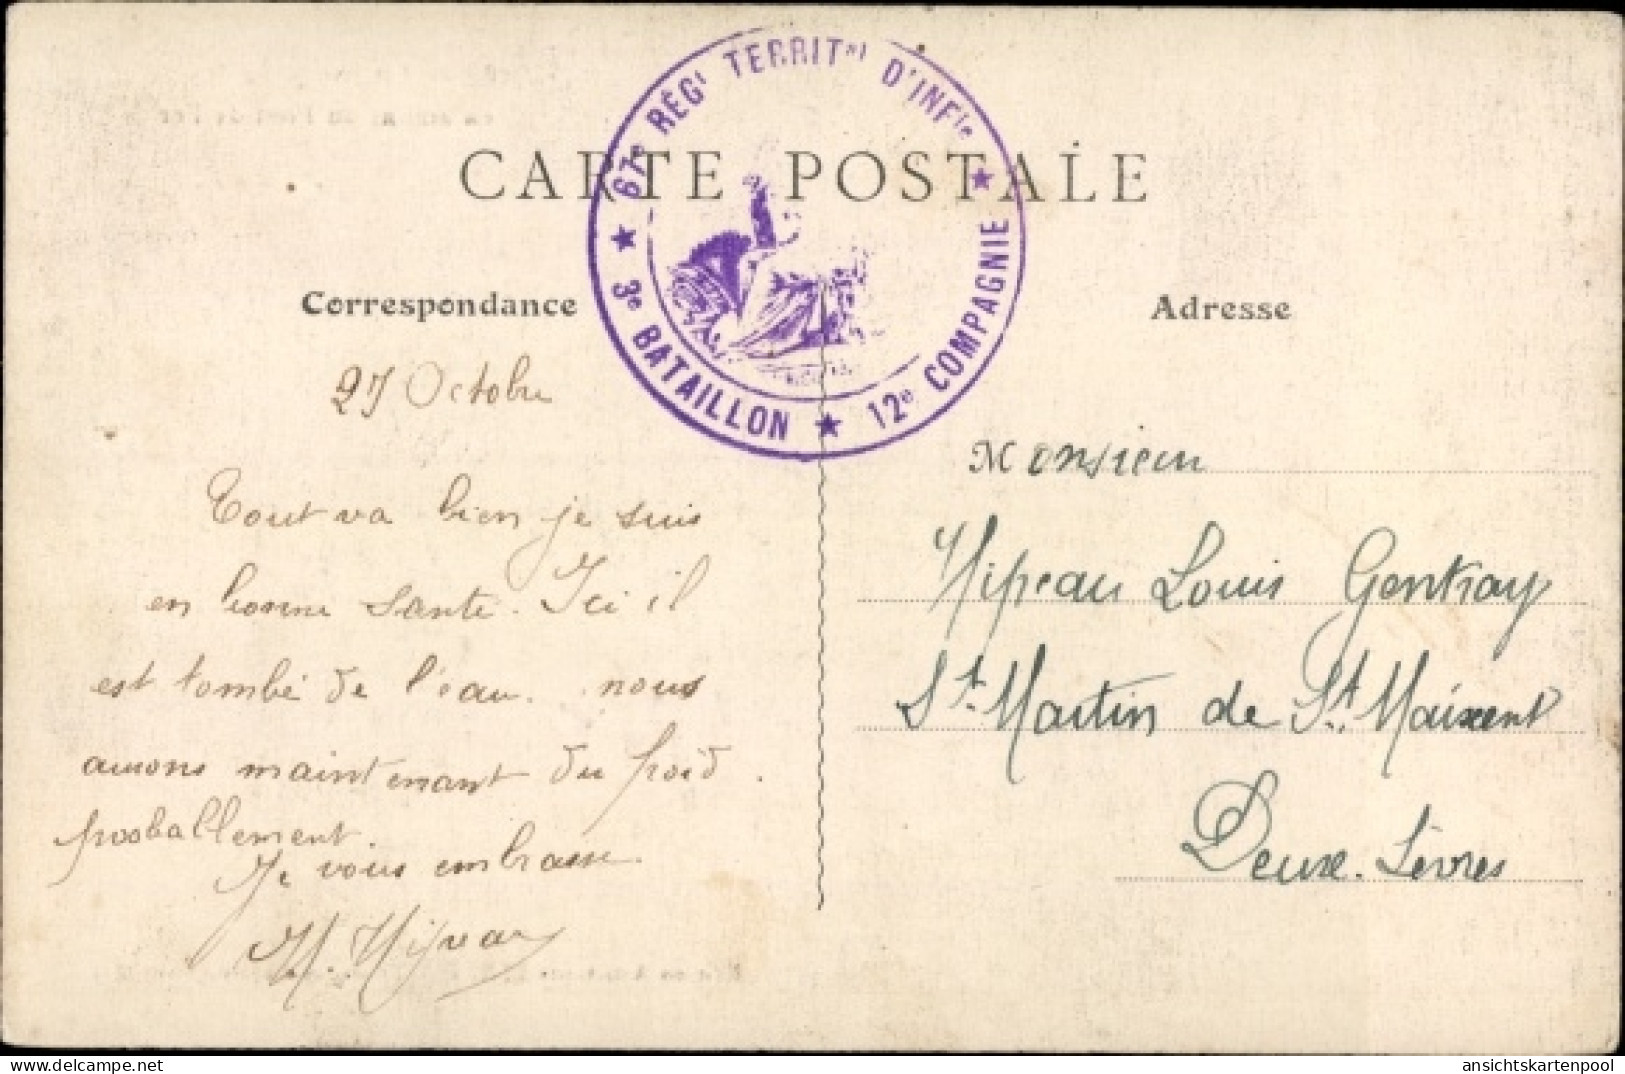 67e RÉGt TERRITal D'INFie
3e BATAILLON ★ 12e COMPAGNIE
CARTE POSTALE
Correspondance
Adresse
27 Octobre
Tout va bien je suis
en bonne sante. Ici il
est tombé de l'eau. nous
aurons maintenant du froid.
probablement.
Je vous embrasse
Monsieur
Nipeau Louis Gentray
St. Martin de St. Maixent
Deux-Sèvres
https://www.delcampe.net
ansichtskartenpool